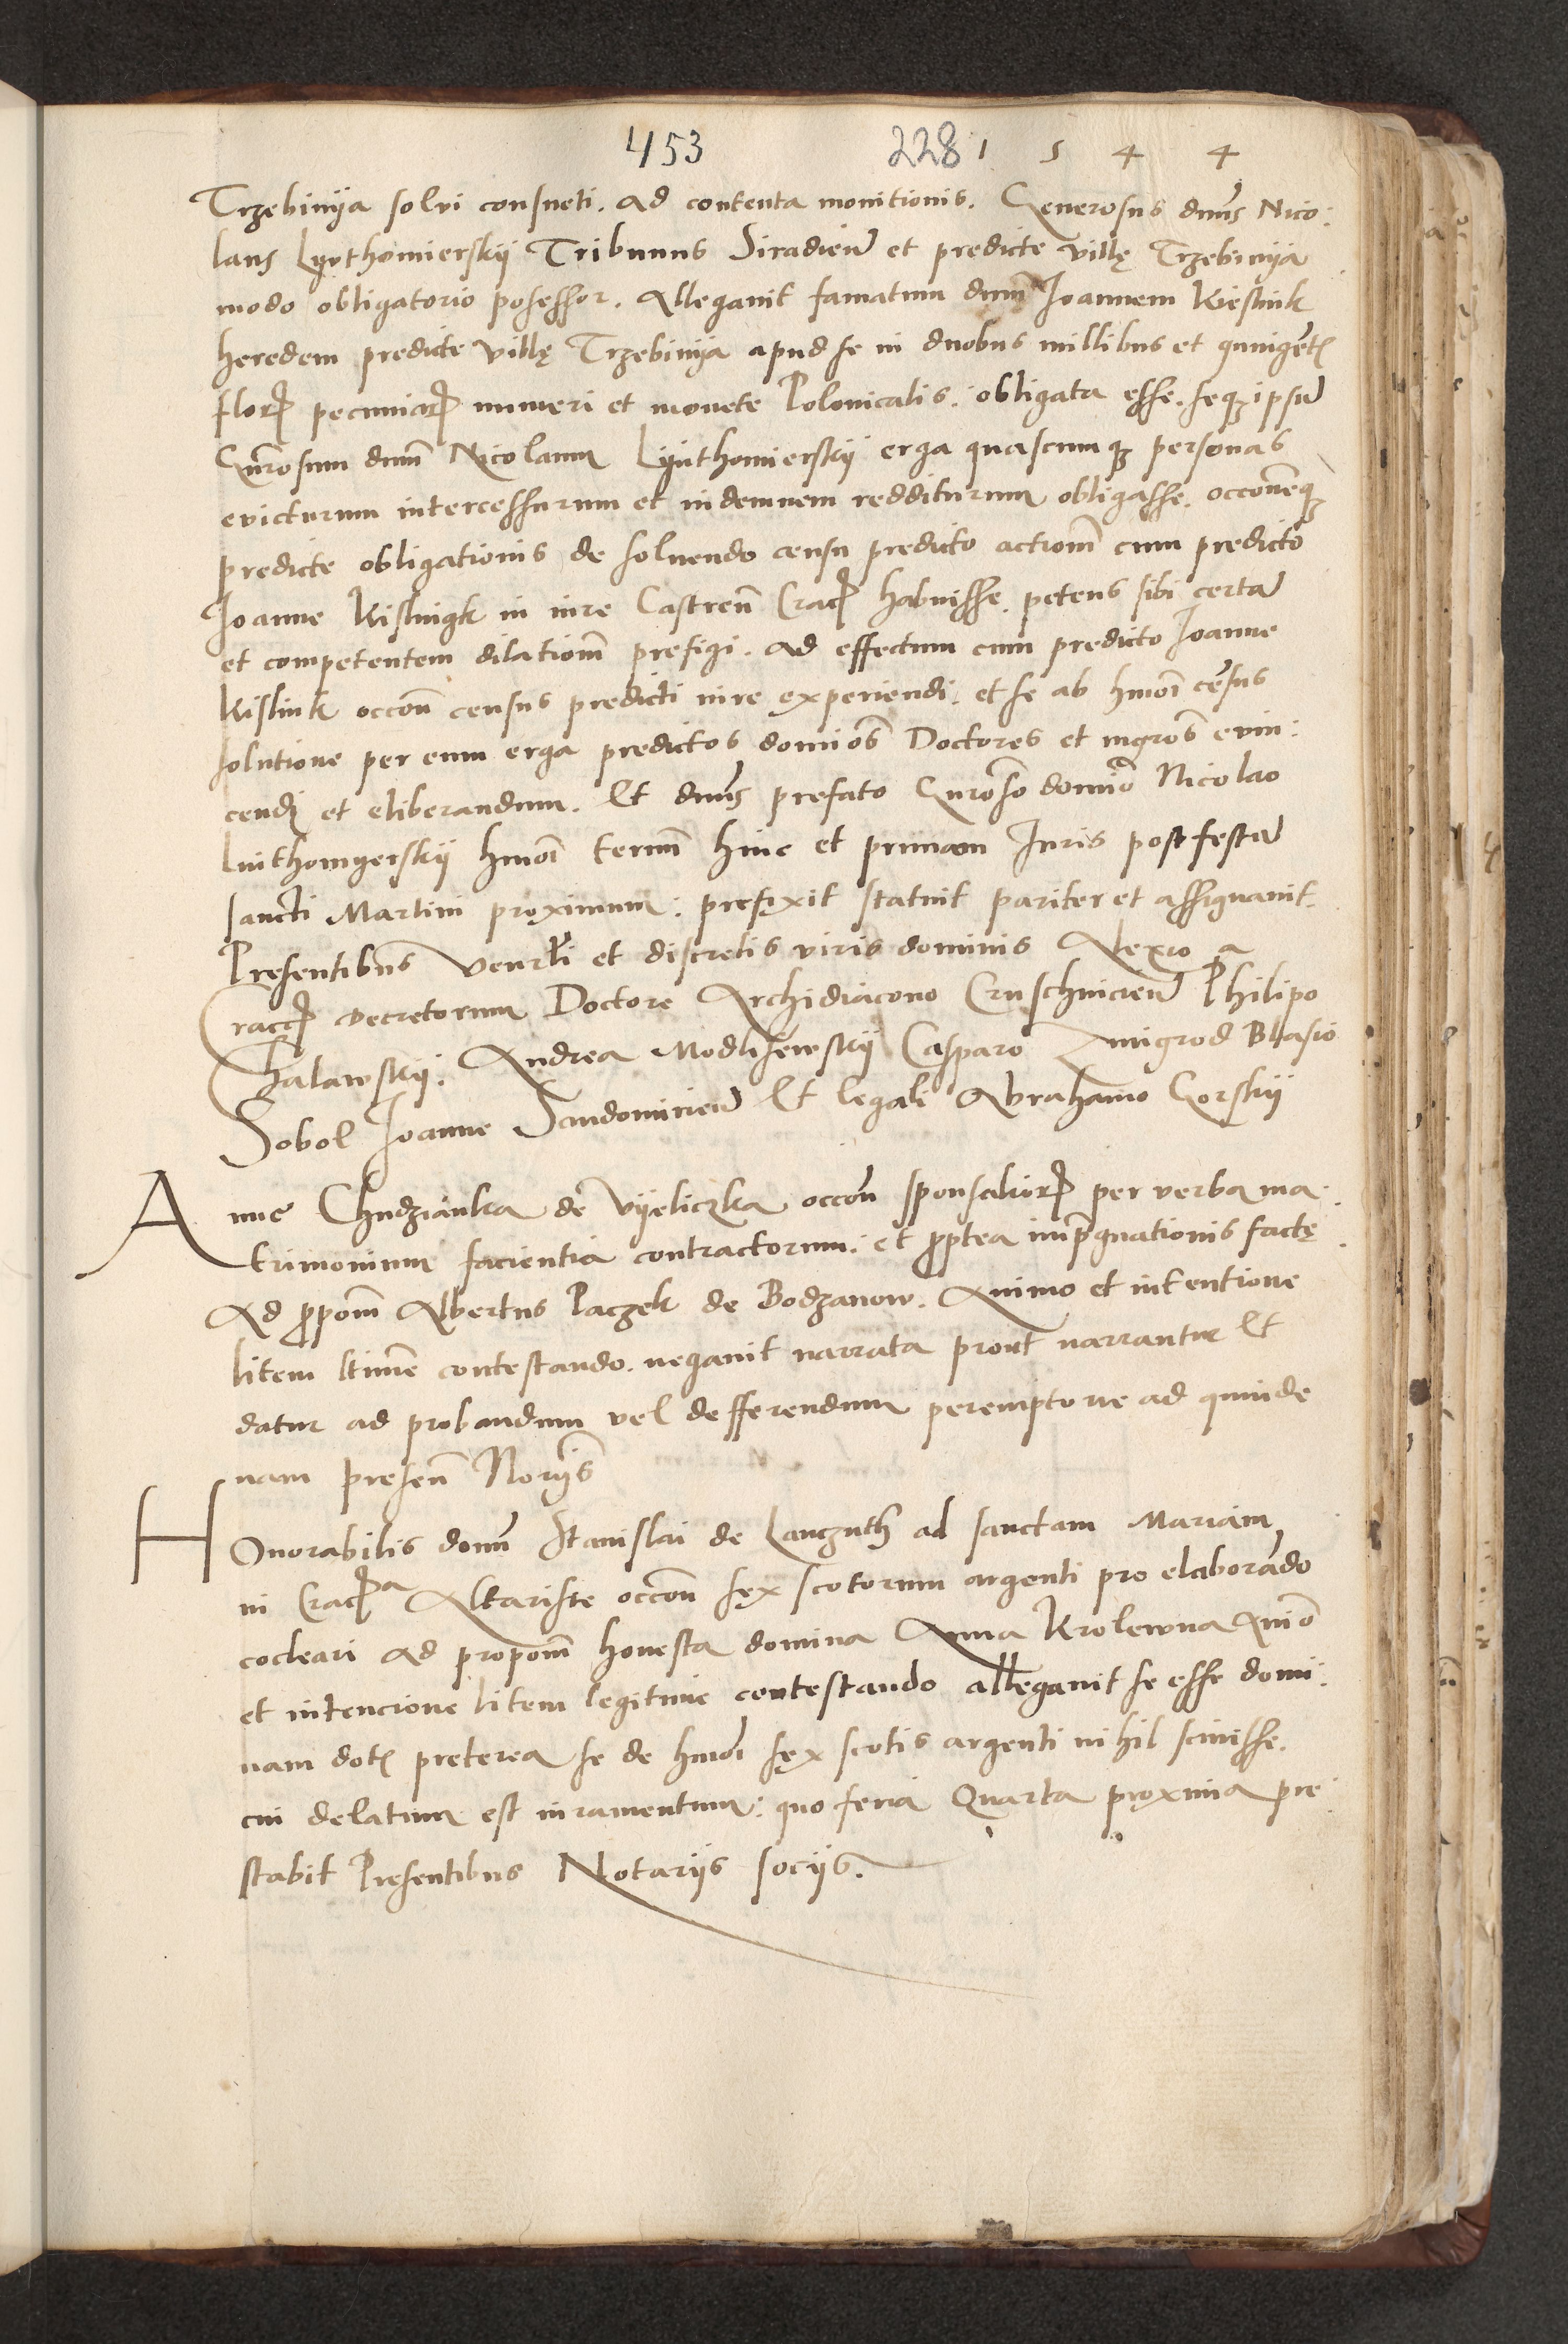 453 228 1 5 4 4
Trzebinija solvi consueti. Ad contenta monitionis. Generosus dnus Nico:
laus Lyuthomierskij Tribunus Siradien et predicte villę Trzebinija
modo obligatorio possessor. Allegauit famatum dnum Joannem Kieslink
heredem predicte villę Trzebinija apud se in duobus millibus et quingent
flor pecuniar numeri et monete Polonicalis. obligata esse. seq3 ipsu
Gnrosum dnum Nicolaum Lyuthomierskij erga quascumq3 personas
evicturum intercessurum et indemnem redditurum obligasse. occoneq3
predicte obligationis de soluendo censu predicto actionem cum predicto
Joanne Kislingk in iure Castren Crac habuisse. petens sibi certa
et competentem dilationem prefigi. Ad effectum cum predicto Joanne
Kislink occon census predicti iure experiendi. et se ab hmoi census
solutione per eum erga predictos dominos Doctores et mgros evin:
cendi et eliberandum. Et dnus prefato Gnroso domino Nicolao
Luthomyerskij hmoi termin hinc et primam Juris post festa
sancti Martini proximum: prefixit statuit pariter et assignauit.
Presentibus Venrli et discretis viris dominis Alexio a
Cracc decretorum Doctore Archidiacono Cruschuicien Philipo
Chalawskij. Andrea Modlisewskij Casparo Zmigrod Blasio
Sobol Joanne Sandomirien Et legali Abrahamo Gorskij
Anne Chudzianka de Vyeliczka occon sponsalior per verba ma
trimonium facientia contractorum: et proptea impgnationis factę
Ad propom Albertus Paczek de Bodzanow. Animo et intentione
litem ltime contestando. negauit narrata prout narrantur Et
datur ad probandum vel defferendum peremptorie ad quinde
nam presen Norijs
HOnorabilis domi Stanislai de Lanczuth ad sanctam Mariam
in Crac a Altariste occon sex scotorum argenti pro elaborando
cocleari Ad propom honesta domina Anna Krolewna Anio
et intencione litem legitime contestando allegauit se esse domi:
nam dot preterea se de hmoi sex scotis argenti nihil sciuisse.
cui delatum est iuramentum: quo feria Quarta proxima pre
stabit Presentibus Notarijs socijs.